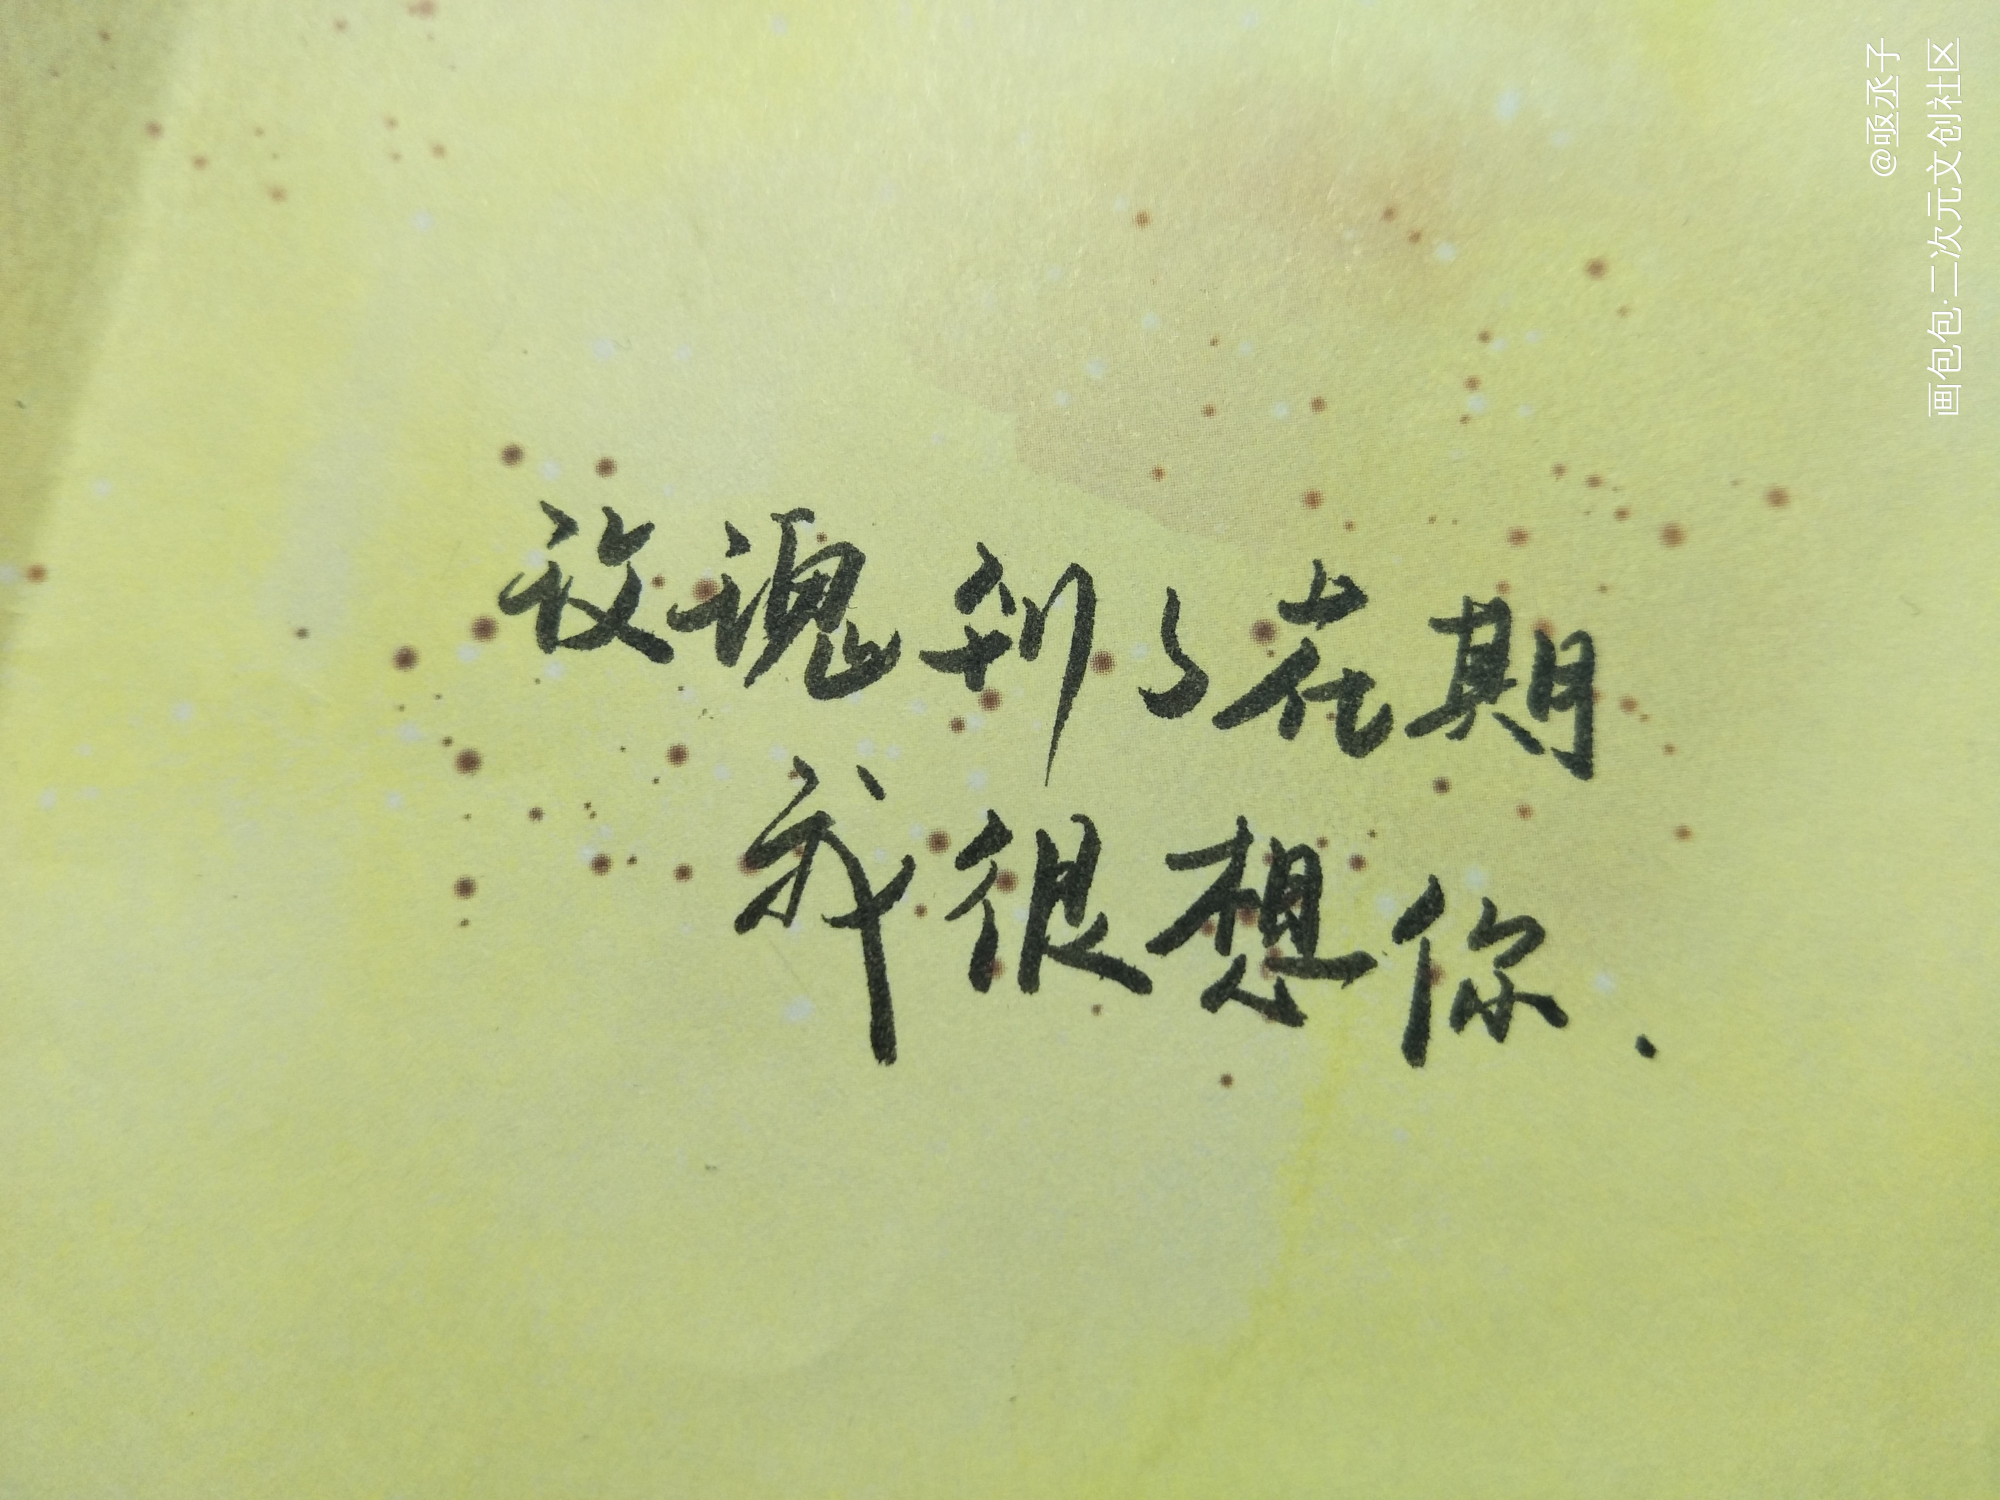 玫瑰到了花期
我很想你.
@亟丞子
画包包·二次元文创社区